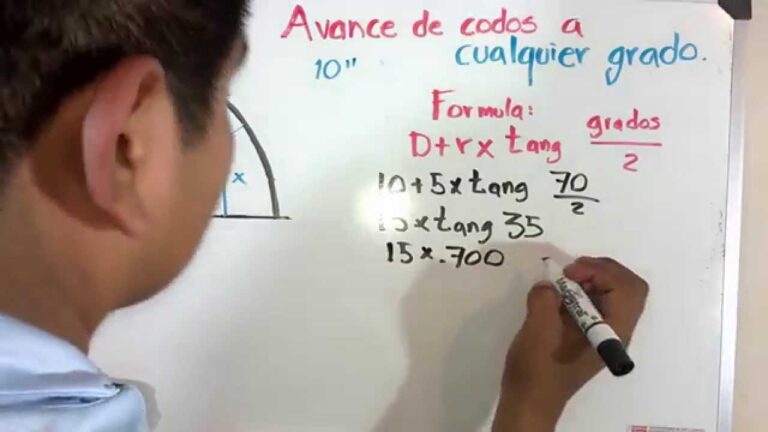 Avance de codos a
cualquier grado.
10"
Formula:
D+rx tang grados
2
10+5xtang 70
2
15xtang 35
15x.700
x